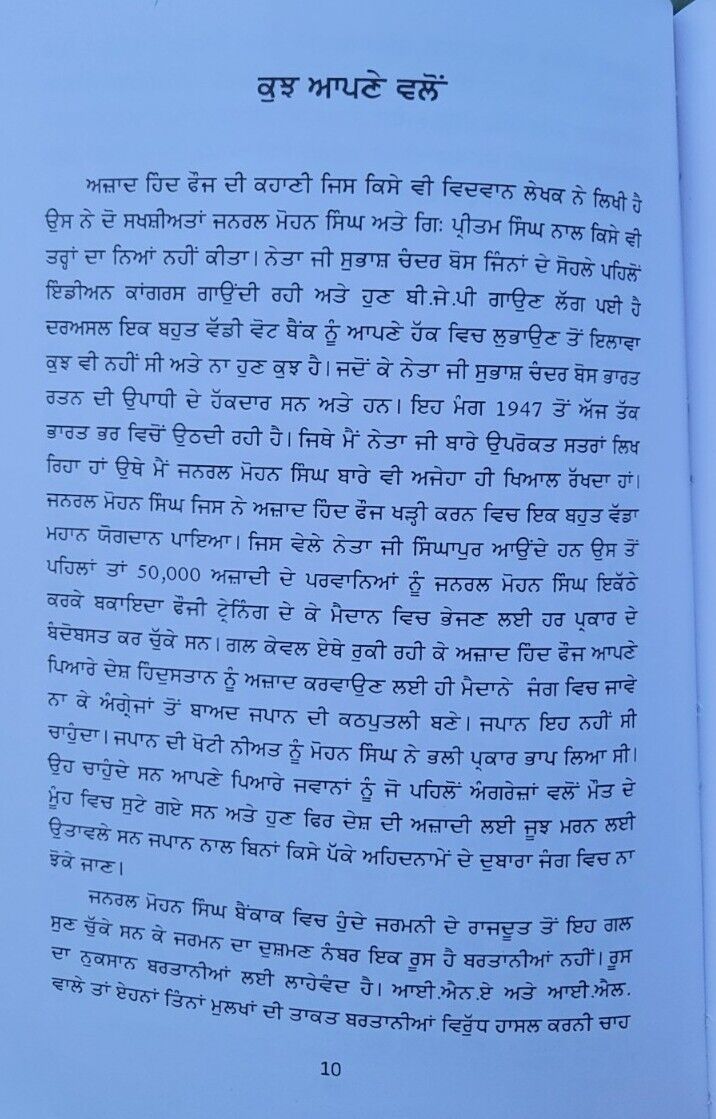 ਕੁਝ ਆਪਣੇ ਵਲੋਂ
ਅਜ਼ਾਦ ਹਿੰਦ ਫੌਜ ਦੀ ਕਹਾਣੀ ਜਿਸ ਕਿਸੇ ਵੀ ਵਿਦਵਾਨ ਲੇਖਕ ਨੇ ਲਿਖੀ ਹੈ
ਉਸ ਨੇ ਦੋ ਸਖਸ਼ੀਅਤਾਂ ਜਨਰਲ ਮੋਹਨ ਸਿੰਘ ਅਤੇ ਗਿਃ ਪ੍ਰੀਤਮ ਸਿੰਘ ਨਾਲ ਕਿਸੇ ਵੀ
ਤਰ੍ਹਾਂ ਦਾ ਨਿਆਂ ਨਹੀਂ ਕੀਤਾ। ਨੇਤਾ ਜੀ ਸੁਭਾਸ਼ ਚੰਦਰ ਬੋਸ ਜਿੰਨਾਂ ਦੇ ਸੋਹਲੇ ਪਹਿਲੋਂ
ਇੰਡੀਅਨ ਕਾਂਗਰਸ ਗਾਉਂਦੀ ਰਹੀ ਅਤੇ ਹੁਣ ਬੀ.ਜੇ.ਪੀ ਗਾਉਣ ਲੱਗ ਪਈ ਹੈ
ਦਰਅਸਲ ਇਕ ਬਹੁਤ ਵੱਡੀ ਵੋਟ ਬੈਂਕ ਨੂੰ ਆਪਣੇ ਹੱਕ ਵਿਚ ਲੁਭਾਉਣ ਤੋਂ ਇਲਾਵਾ
ਕੁਝ ਵੀ ਨਹੀਂ ਸੀ ਅਤੇ ਨਾ ਹੁਣ ਕੁਝ ਹੈ। ਜਦੋਂ ਕੇ ਨੇਤਾ ਜੀ ਸੁਭਾਸ਼ ਚੰਦਰ ਬੋਸ ਭਾਰਤ
ਰਤਨ ਦੀ ਉਪਾਧੀ ਦੇ ਹੱਕਦਾਰ ਸਨ ਅਤੇ ਹਨ। ਇਹ ਮੰਗ 1947 ਤੋਂ ਅੱਜ ਤੱਕ
ਭਾਰਤ ਭਰ ਵਿਚੋਂ ਉਠਦੀ ਰਹੀ ਹੈ। ਜਿਥੇ ਮੈਂ ਨੇਤਾ ਜੀ ਬਾਰੇ ਉਪਰੋਕਤ ਸਤਰਾਂ ਲਿਖ
ਰਿਹਾ ਹਾਂ ਉਥੇ ਮੈਂ ਜਨਰਲ ਮੋਹਨ ਸਿੰਘ ਬਾਰੇ ਵੀ ਅਜੇਹਾ ਹੀ ਖਿਆਲ ਰੱਖਦਾ ਹਾਂ।
ਜਨਰਲ ਮੋਹਨ ਸਿੰਘ ਜਿਸ ਨੇ ਅਜ਼ਾਦ ਹਿੰਦ ਫੌਜ ਖੜ੍ਹੀ ਕਰਨ ਵਿਚ ਇਕ ਬਹੁਤ ਵੱਡਾ
ਮਹਾਨ ਯੋਗਦਾਨ ਪਾਇਆ। ਜਿਸ ਵੇਲੇ ਨੇਤਾ ਜੀ ਸਿੰਘਾਪੁਰ ਆਉਂਦੇ ਹਨ ਉਸ ਤੋਂ
ਪਹਿਲਾਂ ਤਾਂ 50,000 ਅਜ਼ਾਦੀ ਦੇ ਪਰਵਾਨਿਆਂ ਨੂੰ ਜਨਰਲ ਮੋਹਨ ਸਿੰਘ ਇਕੱਠੇ
ਕਰਕੇ ਬਕਾਇਦਾ ਫੌਜੀ ਟ੍ਰੇਨਿੰਗ ਦੇ ਕੇ ਮੈਦਾਨ ਵਿਚ ਭੇਜਣ ਲਈ ਹਰ ਪ੍ਰਕਾਰ ਦੇ
ਬੰਦੋਬਸਤ ਕਰ ਚੁੱਕੇ ਸਨ। ਗਲ ਕੇਵਲ ਏਥੇ ਰੁਕੀ ਰਹੀ ਕੇ ਅਜ਼ਾਦ ਹਿੰਦ ਫੌਜ ਆਪਣੇ
ਪਿਆਰੇ ਦੇਸ਼ ਹਿਦੁਸਤਾਨ ਨੂੰ ਅਜ਼ਾਦ ਕਰਵਾਉਣ ਲਈ ਹੀ ਮੈਦਾਨੇ ਜੰਗ ਵਿਚ ਜਾਵੇ
ਨਾ ਕੇ ਅੰਗ੍ਰੇਜਾਂ ਤੋਂ ਬਾਅਦ ਜਪਾਨ ਦੀ ਕਠਪੁਤਲੀ ਬਣੇ। ਜਪਾਨ ਇਹ ਨਹੀਂ ਸੀ
ਚਾਹੁੰਦਾ। ਜਪਾਨ ਦੀ ਖੋਟੀ ਨੀਅਤ ਨੂੰ ਮੋਹਨ ਸਿੰਘ ਨੇ ਭਲੀ ਪ੍ਰਕਾਰ ਭਾਪ ਲਿਆ ਸੀ।
ਉਹ ਚਾਹੁੰਦੇ ਸਨ ਆਪਣੇ ਪਿਆਰੇ ਜਵਾਨਾਂ ਨੂੰ ਜੋ ਪਹਿਲੋਂ ਅੰਗਰੇਜ਼ਾਂ ਵਲੋਂ ਮੌਤ ਦੇ
ਮੂੰਹ ਵਿਚ ਸੁਟੇ ਗਏ ਸਨ ਅਤੇ ਹੁਣ ਫਿਰ ਦੇਸ਼ ਦੀ ਅਜ਼ਾਦੀ ਲਈ ਜੂਝ ਮਰਨ ਲਈ
ਉਤਾਵਲੇ ਸਨ ਜਪਾਨ ਨਾਲ ਬਿਨਾਂ ਕਿਸੇ ਪੱਕੇ ਅਹਿਦਨਾਮੇਂ ਦੇ ਦੁਬਾਰਾ ਜੰਗ ਵਿਚ ਨਾ
ਝੋਕੇ ਜਾਣ।
ਜਨਰਲ ਮੋਹਨ ਸਿੰਘ ਬੈਂਕਾਕ ਵਿਚ ਹੁੰਦੇ ਜਰਮਨੀ ਦੇ ਰਾਜਦੂਤ ਤੋਂ ਇਹ ਗਲ
ਸੁਣ ਚੁੱਕੇ ਸਨ ਕੇ ਜਰਮਨ ਦਾ ਦੁਸ਼ਮਣ ਨੰਬਰ ਇਕ ਰੂਸ ਹੈ ਬਰਤਾਨੀਆਂ ਨਹੀਂ। ਰੂਸ
ਦਾ ਨੁਕਸਾਨ ਬਰਤਾਨੀਆਂ ਲਈ ਲਾਹੇਵੰਦ ਹੈ। ਆਈ.ਐਨ.ਏ ਅਤੇ ਆਈ.ਐਲ.
ਵਾਲੇ ਤਾਂ ਏਹਨਾਂ ਤਿੰਨਾਂ ਮੁਲਖਾਂ ਦੀ ਤਾਕਤ ਬਰਤਾਨੀਆਂ ਵਿਰੁੱਧ ਹਾਸਲ ਕਰਨੀ ਚਾਹ
10